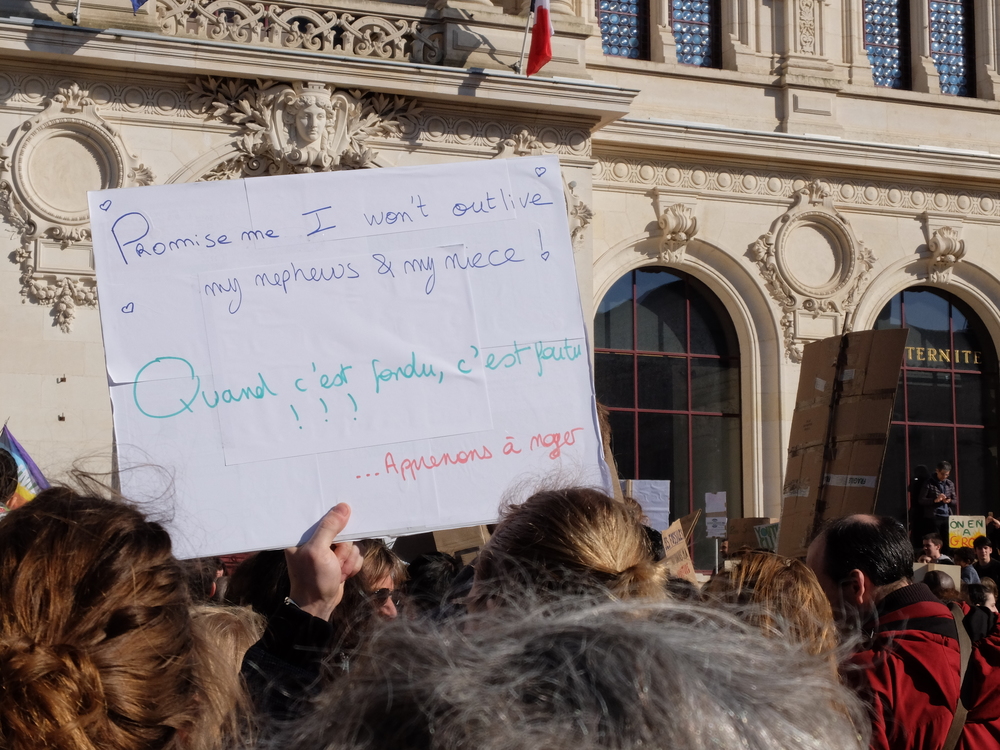 Promise me I won't outlive
my nephews & my niece !
Quand c'est fondu, c'est foutu
! ! !
...Apprenons à nager
TERNITE
ON EN
A